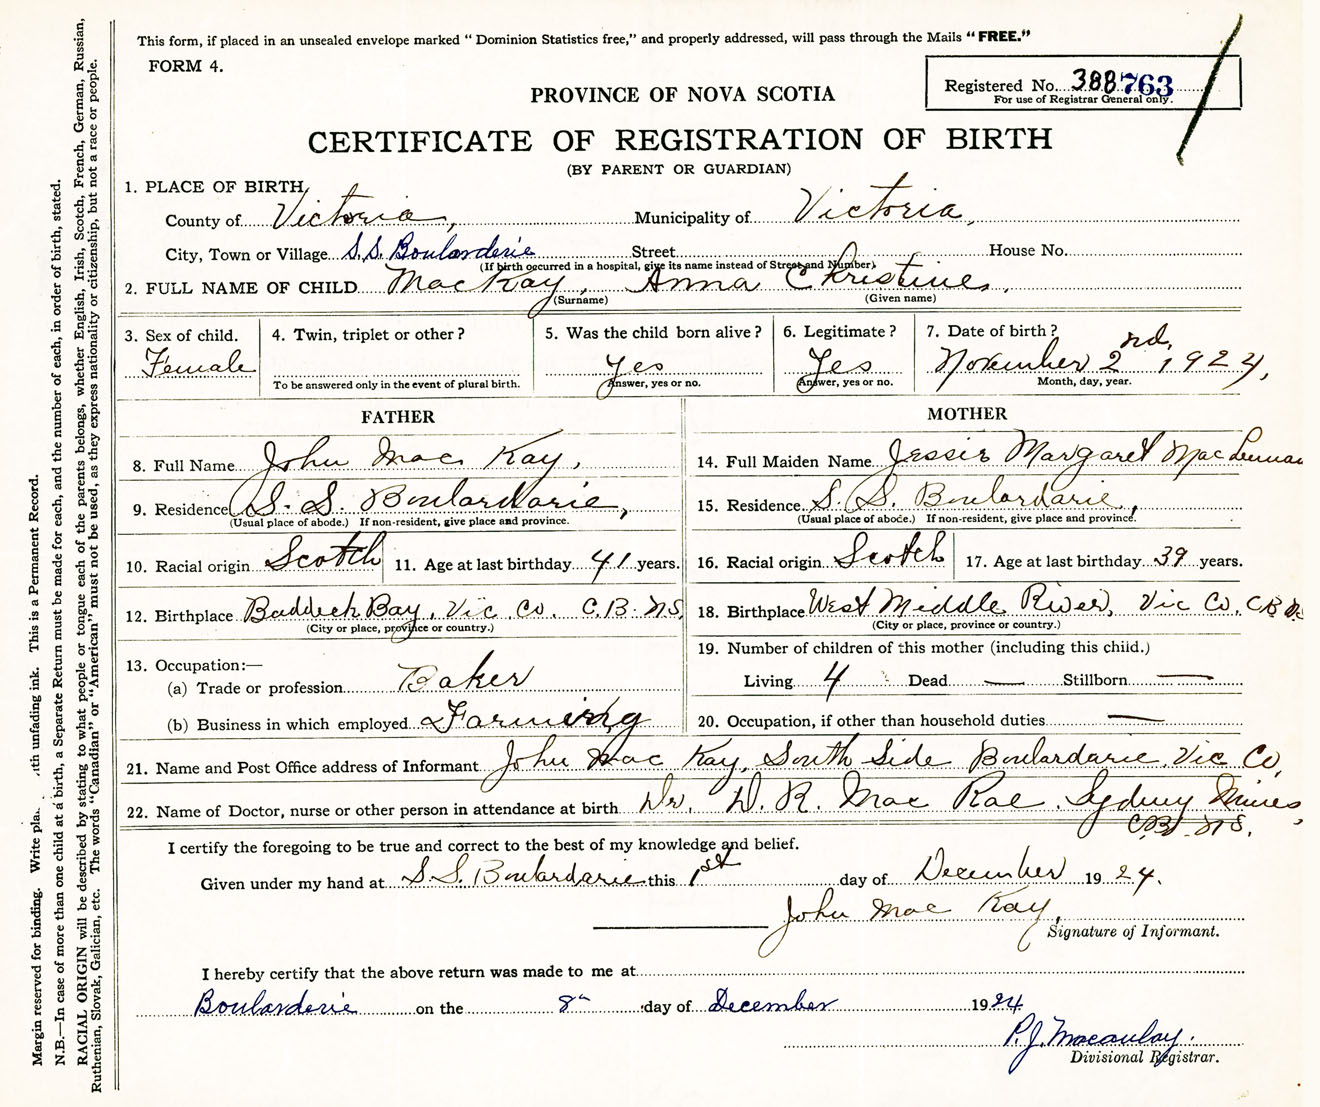 This form, if placed in an unsealed envelope marked "Dominion Statistics free," and properly addressed, will pass through the Mails "FREE."
FORM 4.
Registered No. 388763
For use of Registrar General only.
PROVINCE OF NOVA SCOTIA
CERTIFICATE OF REGISTRATION OF BIRTH
(BY PARENT OR GUARDIAN)
1. PLACE OF BIRTH
County of Victoria, Municipality of Victoria,
City, Town or Village S.S. Boularderie Street House No.
(If birth occurred in a hospital, give its name instead of Street and Number)
2. FULL NAME OF CHILD MacKay, Anna Christine,
(Surname) (Given name)
3. Sex of child. 4. Twin, triplet or other? 5. Was the child born alive? 6. Legitimate? 7. Date of birth?
Female Yes Yes November 2rd, 1924,
To be answered only in the event of plural birth. Answer, yes or no. Answer, yes or no. Month, day, year.
FATHER
8. Full Name John Mac Kay,
9. Residence S. S. Boulardarie,
(Usual place of abode.) If non-resident, give place and province.
10. Racial origin Scotch 11. Age at last birthday 41 years.
12. Birthplace Baddeck Bay, Vic Co. C.B. N.S.
(City or place, province or country.)
13. Occupation:—
(a) Trade or profession Baker
(b) Business in which employed Farming
MOTHER
14. Full Maiden Name Jessie Margaret Mac Lennan
15. Residence S. S. Boulardarie,
(Usual place of abode.) If non-resident, give place and province.
16. Racial origin Scotch 17. Age at last birthday 39 years.
18. Birthplace West Middle River, Vic Co, C.B N.S
(City or place, province or country.)
19. Number of children of this mother (including this child.)
Living 4 Dead — Stillborn —
20. Occupation, if other than household duties —
21. Name and Post Office address of Informant John Mac Kay, South Side Boulardarie, Vic Co,
22. Name of Doctor, nurse or other person in attendance at birth Dr. D. R. Mac Rae. Sydney Mines,
C.B. N.S.
I certify the foregoing to be true and correct to the best of my knowledge and belief.
Given under my hand at S.S. Boulardarie this 1st day of December 1924.
John Mac Kay,
Signature of Informant.
I hereby certify that the above return was made to me at
Boularderie on the 8th day of December 1924
P.J. Macaulay.
Divisional Registrar.
Margin reserved for binding. Write pla. .ith unfading ink. This is a Permanent Record.
N.B.—In case of more than one child at a birth, a Separate Return must be made for each, and the number of each, in order of birth, stated.
RACIAL ORIGIN will be described by stating to what people or tongue each of the parents belongs, whether English, Irish, Scotch, French, German, Russian,
Ruthenian, Slovak, Galician, etc. The words "Canadian" or "American" must not be used, as they express nationality or citizenship, but not a race or people.